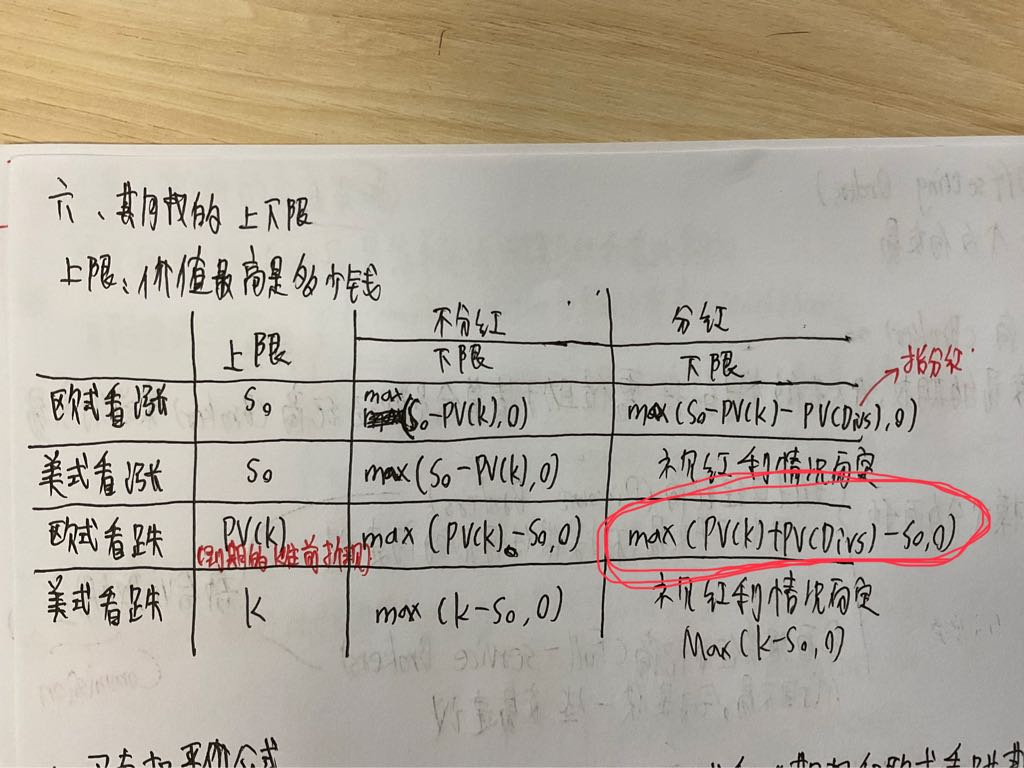 六、期权的上下限
上限:价值最高是多少钱
上限 不分红 分红
下限 下限 指分红
欧式看涨 S₀ max(S₀-PV(k),0) max(S₀-PV(k)-PV(Divs),0)
美式看涨 S₀ max(S₀-PV(k),0) 视红利情况而定
欧式看跌 PV(k) max(PV(k)-S₀,0) max(PV(k)+PV(Divs)-S₀,0)
(到期的k往前折现)
美式看跌 k max(k-S₀,0) 视红利情况而定
Max(k-S₀,0)
平价公式